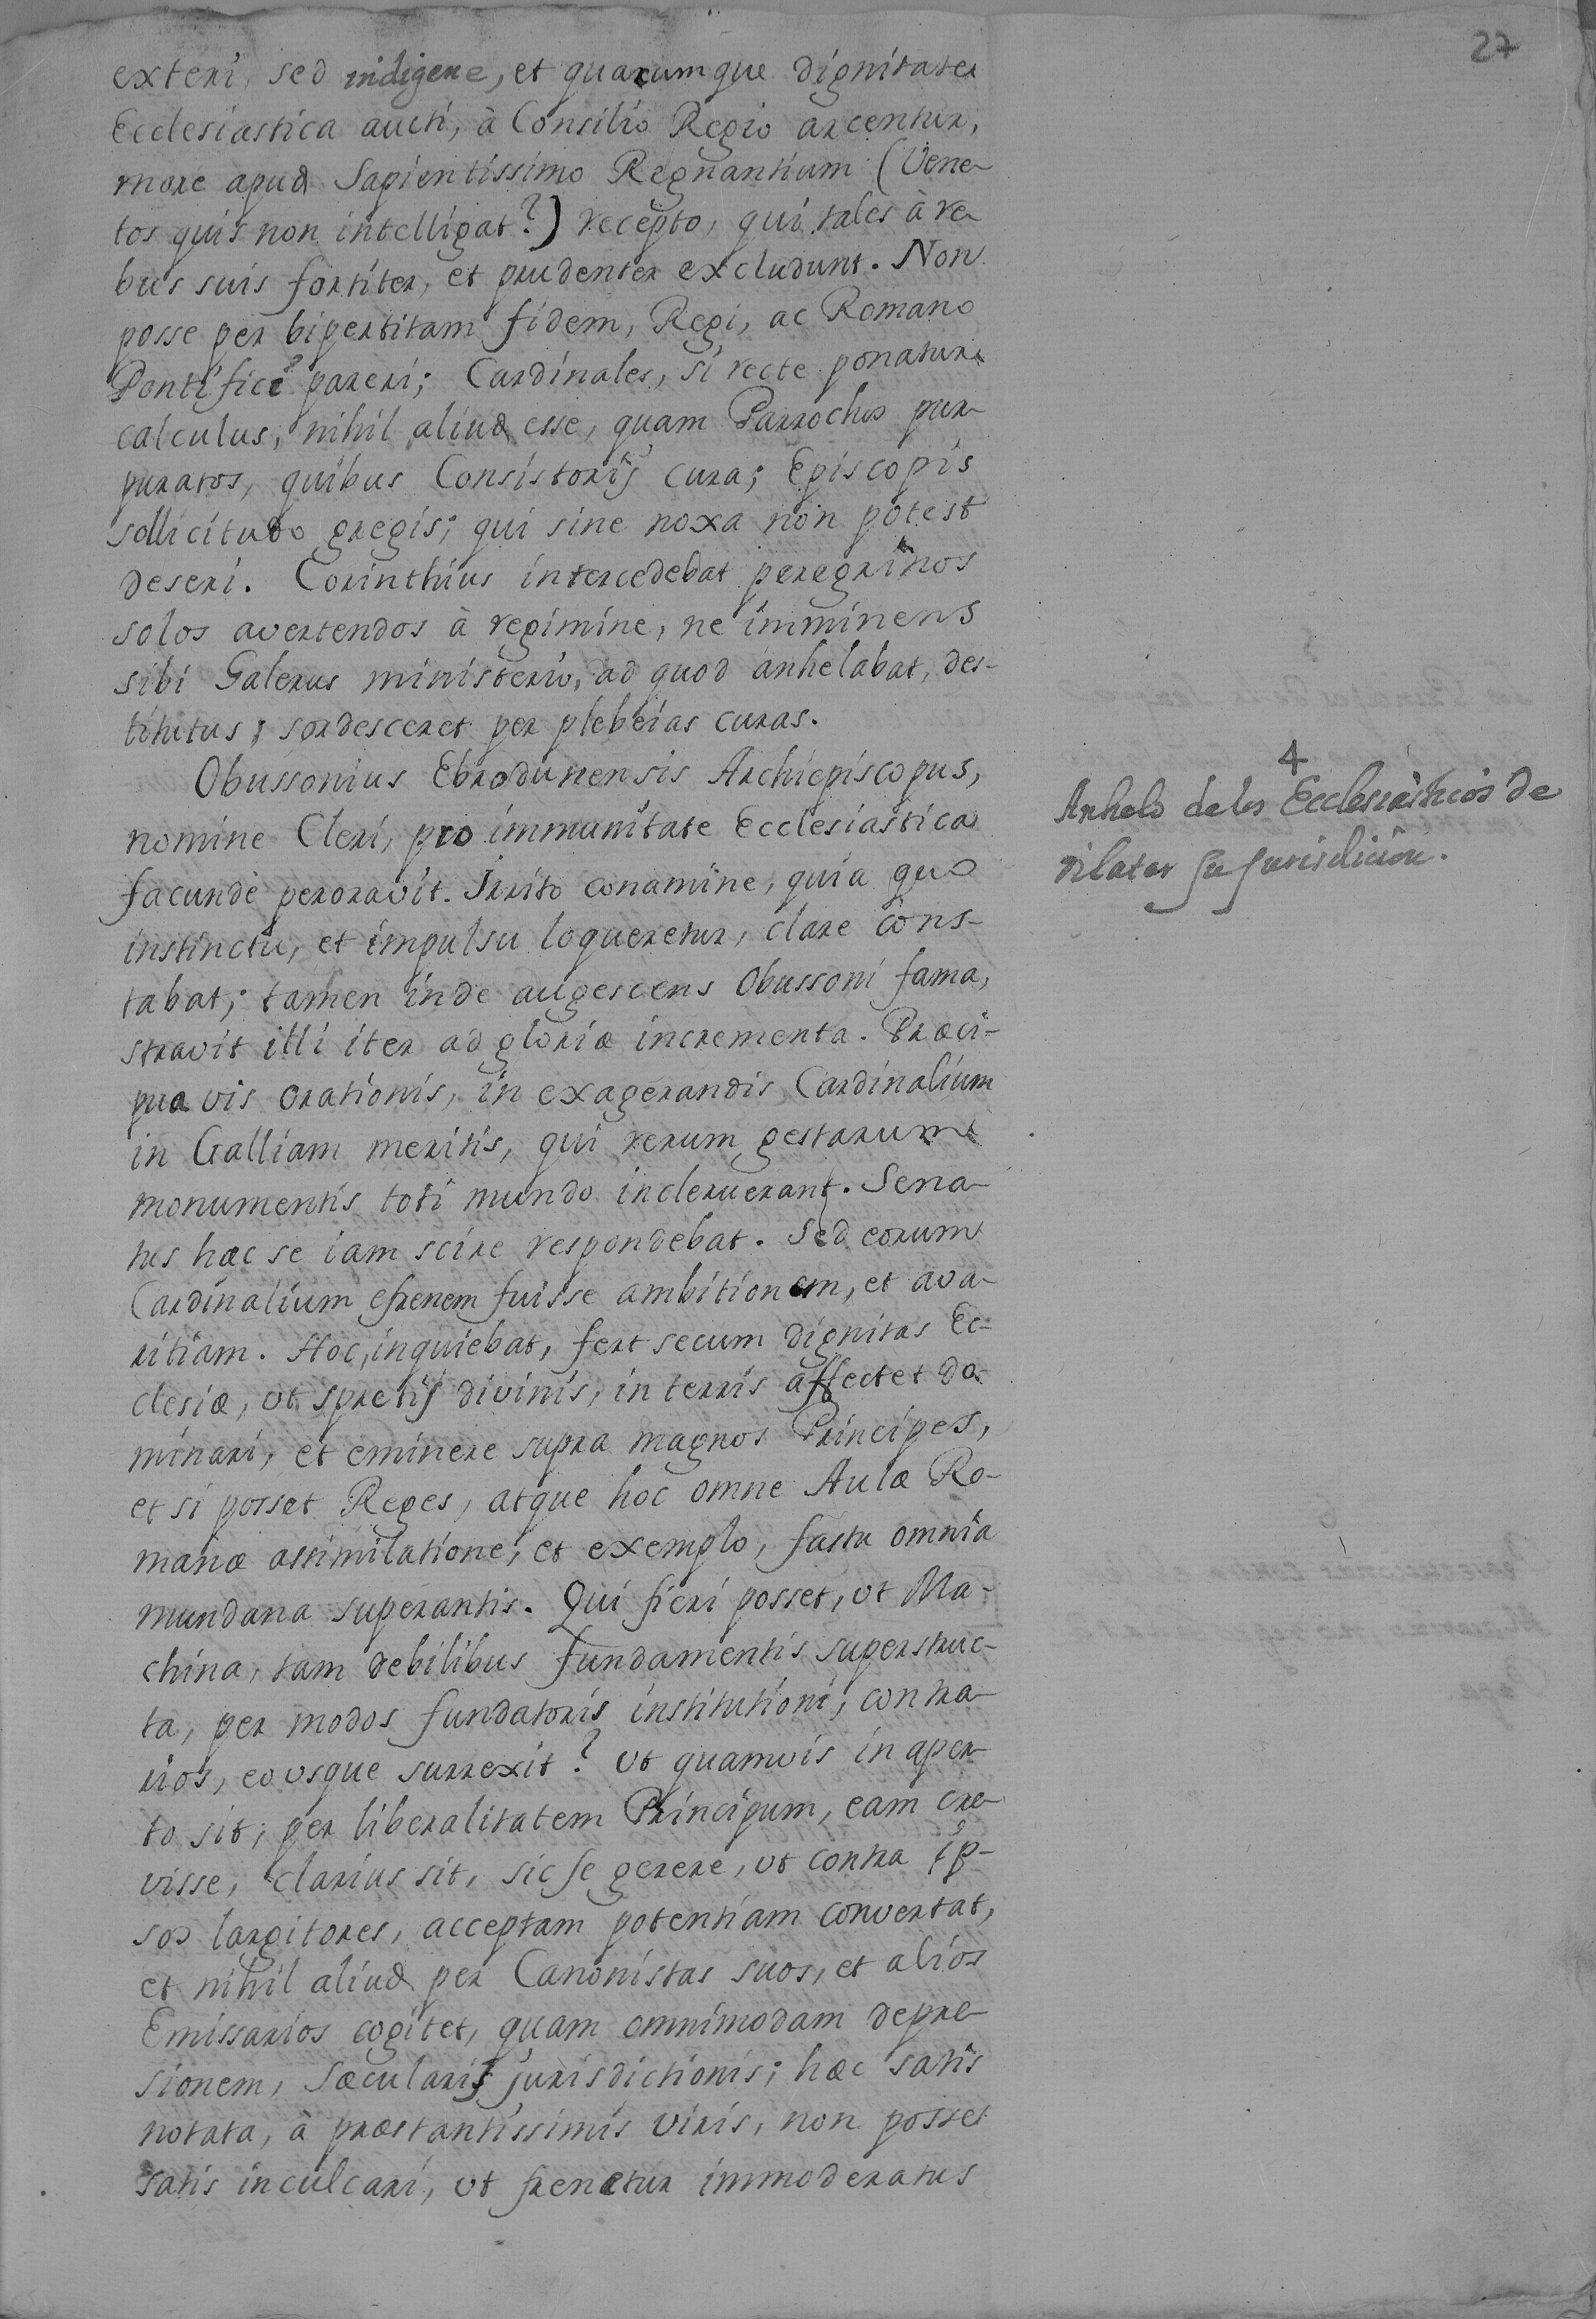 27
exteri, sed indigene, et quacumque dignitate
Ecclesiastica aucti, à Consilio Regio arcentur,
more apud Sapientissimo Regnantium (Vene-
tos quis non intelligat?) recepto, qui tales à re-
bus suis fortiter, et prudenter excludunt. Non
posse per bipertitam fidem, Regi, ac Romano
Pontifici pareri; Cardinales, si recte ponatur
calculus, nihil aliud esse, quam Parrochos pur-
puratos, quibus Consistorij cura; Episcopis
sollicitudo gregis; qui sine noxa non potest
deseri. Corinthius intercedebat peregrinos
solos avertendos à regimine, ne imminens
sibi Galerus ministerio, ad quod anhelabat, des-
titutus, sordesceret per plebeias curas.
Obussonius Ebrodunensis Archiepiscopus,
nomine Cleri, pro immunitate Ecclesiastica
facundè peroravit. Irrito conamine, quia quo
instinctu, et impulsu loqueretur, clare cons-
tabat; tamen inde augescens Obussoni fama,
stravit illi iter ad gloriæ incrementa. Præci-
pua vis orationis, in exagerandis Cardinalium
in Galliam meritis, qui rerum gestarum
monumentis toti mundo incleruerant. Sena-
tus hæc se iam scire respondebat. Sed eorum
Cardinalium efrenem fuisse ambitionem, et ava-
ritiam. Hoc, inquiebat, fert secum dignitas Ec-
clesiæ, ut spretis divinis, in terris affectet do-
minari, et eminere supra magnos Principes,
et si posset Reges, atque hoc omne Aulæ Ro-
manæ assimilatione, et exemplo, fastu omnia
mundana superantis. Qui fieri posset, ut Ma-
china, tam debilibus fundamentis superstruc-
ta, per modos fundatoris institutioni, contra-
rios, eousque surrexit? Ut quamvis in aper-
to sit, per liberalitatem Principum, eam cre-
visse, clarius sit, sic se gerere, ut contra ip-
sos largitores, acceptam potentiam convertat,
et nihil aliud per Canonistas suos, et alios
Emissarios cogitet, quam omnimodam depre-
sionem, Sæcularis jurisdictionis; hæc satis
notata, à præstantissimis viris, non posset
satis inculcari, ut frenetur immoderatus
4
Anhelo de los Ecclesiasticos de
dilatar su Jurisdicion.